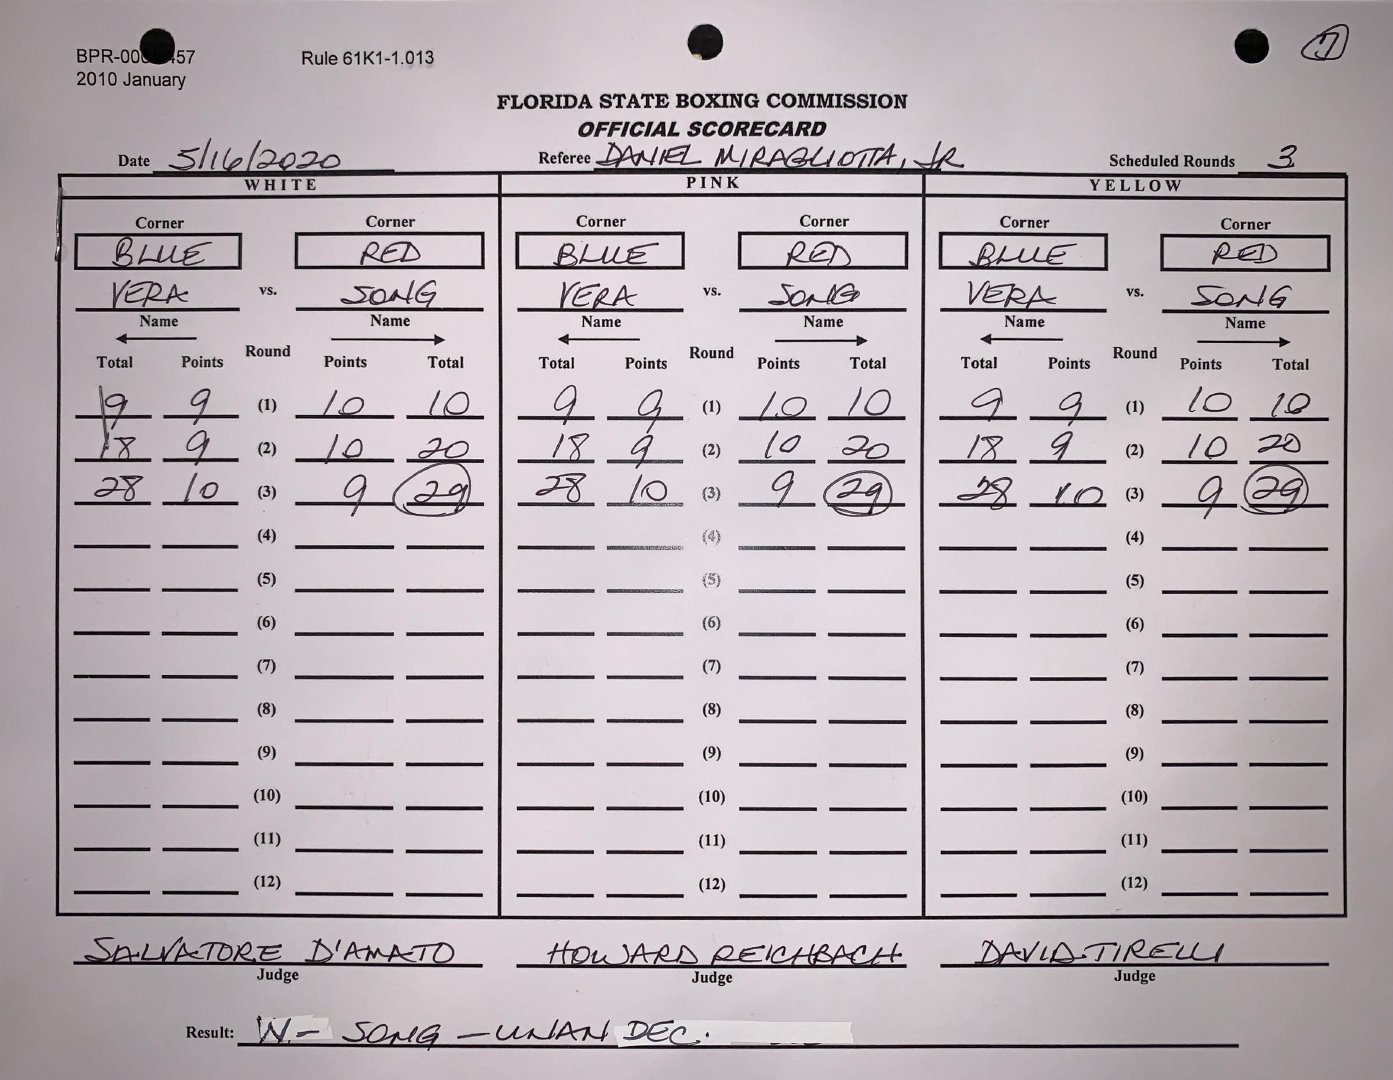 BPR-00 457 Rule 61K1-1.013 7
2010 January
FLORIDA STATE BOXING COMMISSION
OFFICIAL SCORECARD
Date 5/16/2020 Referee DANIEL MIRAGLIOTTA, JR Scheduled Rounds 3
WHITE PINK YELLOW
Corner Corner Corner Corner Corner Corner
BLUE RED BLUE RED BLUE RED
VERA vs. SONG VERA vs. SONG VERA vs. SONG
Name Name Name Name Name Name
Total Points Round Points Total Total Points Round Points Total Total Points Round Points Total
9 9 (1) 10 10 9 9 (1) 10 10 9 9 (1) 10 10
18 9 (2) 10 20 18 9 (2) 10 20 18 9 (2) 10 20
28 10 (3) 9 29 28 10 (3) 9 29 28 10 (3) 9 29
(4) (4) (4)
(5) (5) (5)
(6) (6) (6)
(7) (7) (7)
(8) (8) (8)
(9) (9) (9)
(10) (10) (10)
(11) (11) (11)
(12) (12) (12)
SALVATORE D'AMATO HOWARD REICHBACH DAVID TIRELLI
Judge Judge Judge
Result: W. - SONG - UNAN DEC.